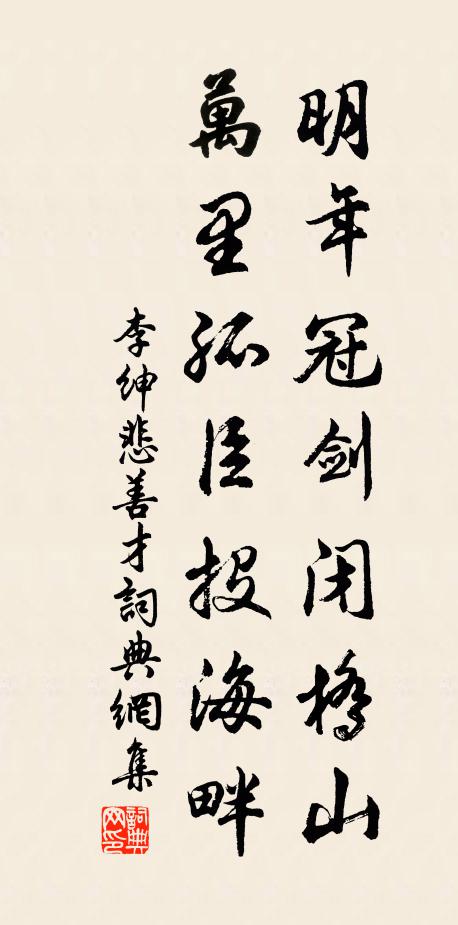 明年冠剑闭橋山
萬里孤臣投海畔
李紳悲善才詞典網集
詞典网印